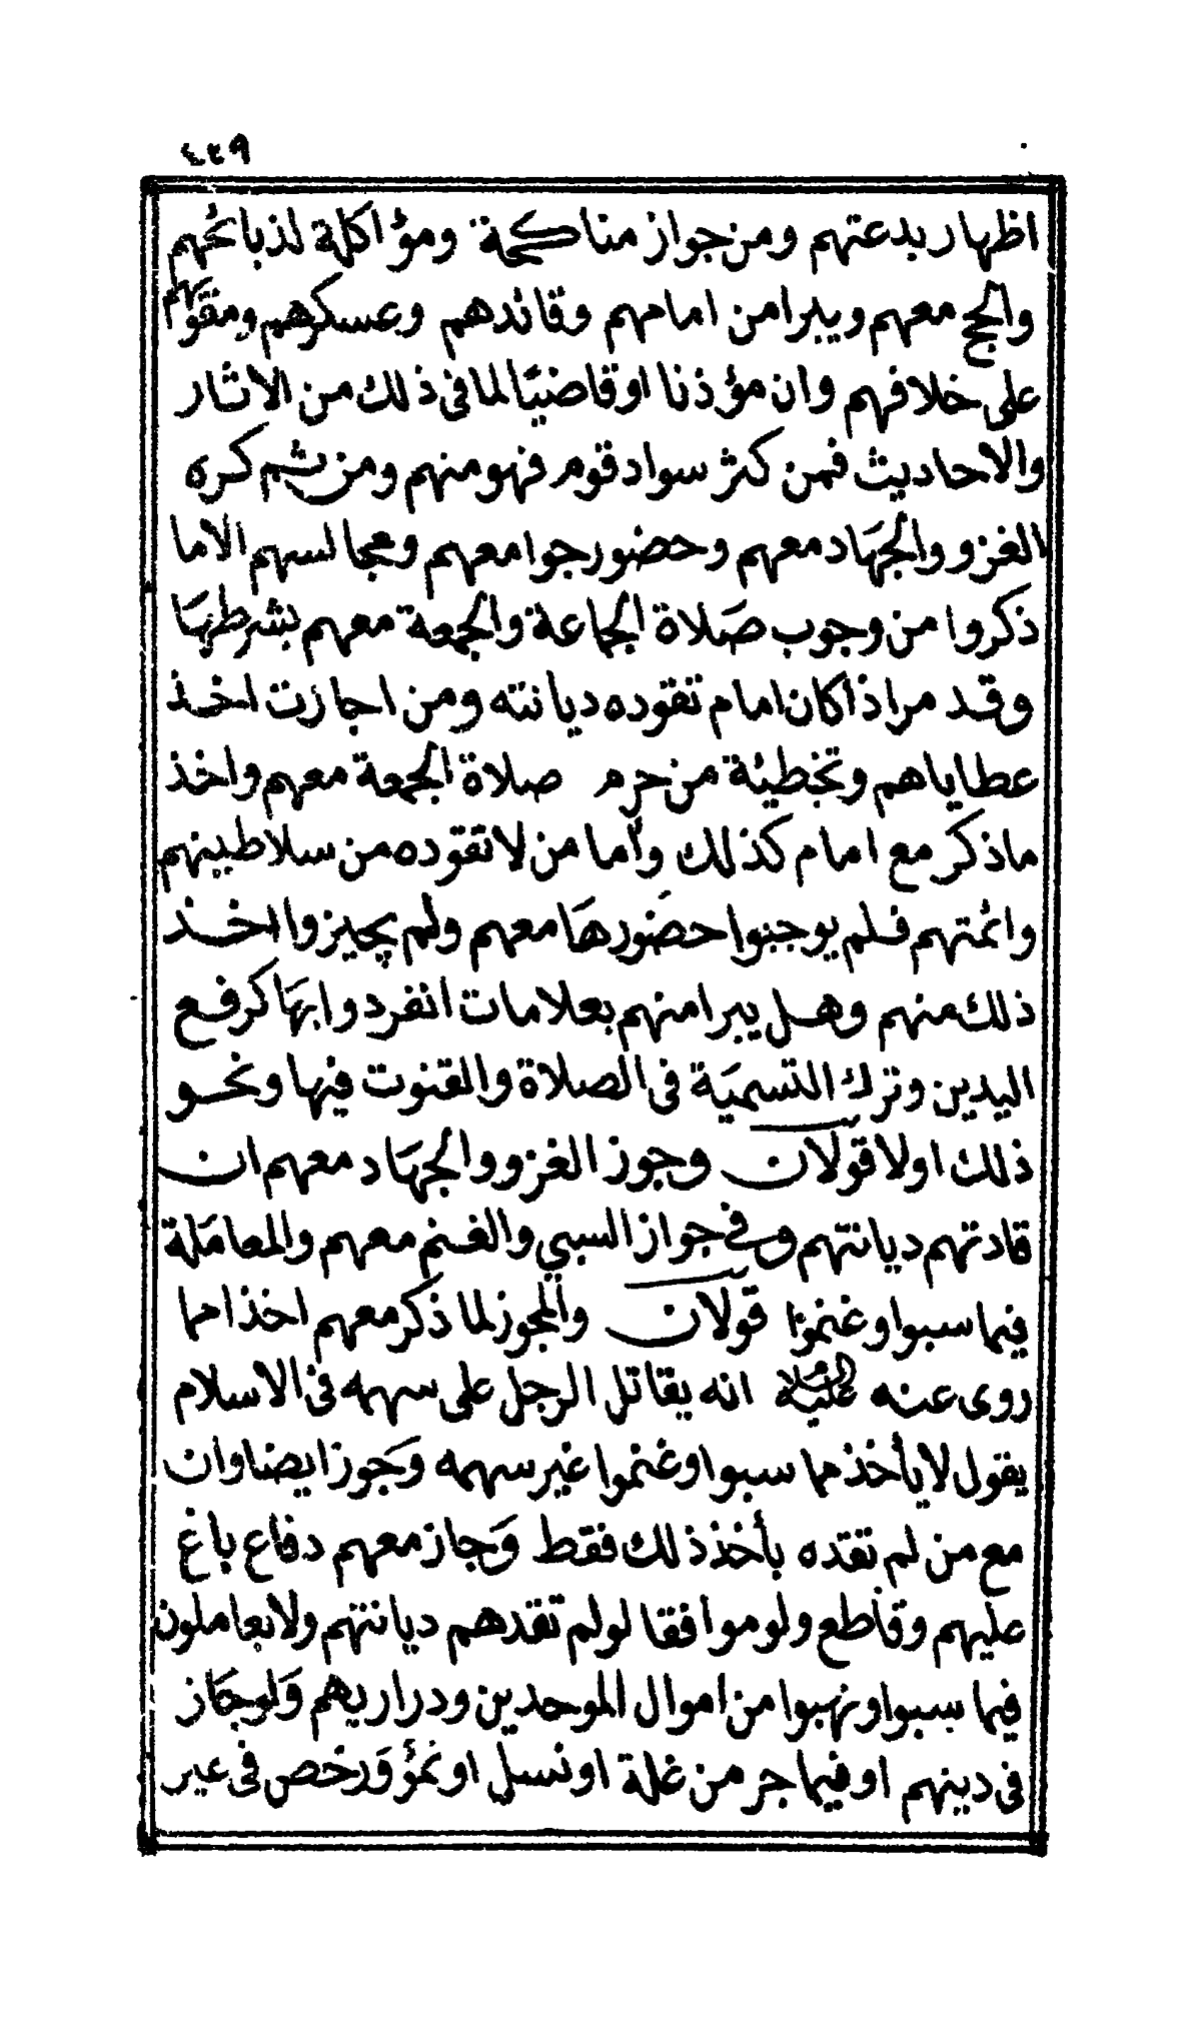 ٤٤٩
اظهار بدعتهم ومن جواز مناكحة ومؤاكلة لذبائحهم
والحج معهم ويبرا من امامهم وقائدهم وعسكرهم ومقوّيهم
على خلافهم وان مؤذنا او قاضيًا لما فى ذلك من الاثار
والاحاديث فمن كثر سواد قوم فهو منهم ومن ثم كره
الغزو والجهاد معهم وحضور جوامعهم ومجالسهم الا ما
ذكروا من وجوب صلاة الجماعة والجمعة معهم بشرطها
وقد مر اذا كان امام تقوده ديانته ومن اجازت اخذ
عطاياهم وتخطيئة من حرم صلاة الجمعة معهم واخذ
ما ذكر مع امام كذلك وأما من لا تقوده من سلاطينهم
وائمتهم فلم يوجبوا حضورها معهم ولم يجيزوا اخذ
ذلك منهم وهل يبرا منهم بعلامات انفردوا بها كرفع
اليدين وترك التسمية فى الصلاة والقنوت فيها ونحو
ذلك اولا قولان وجوز الغزو والجهاد معهم ان
قادتهم ديانتهم وفى جواز السبي والغنم معهم والمعاملة
فيما سبوا وغنموا قولان والمجوز لما ذكر معهم اخذا مما
روى عنه عليه السلام انه يقاتل الرجل على سهمه فى الاسلام
يقول لا يأخذ مما سبوا وغنموا غير سهمه وجوز ايضا وان
مع من لم تقده بأخذ ذلك فقط وجاز معهم دفاع باغ
عليهم وقاطع ولو موافقا لو لم تقدهم ديانتهم ولا يعاملون
فيما سبوا ونهبوا من اموال الموحدين ودراريهم ولو جاز
فى دينهم او فيما جر من غلة او نسل او نمؤ ورخص فى غير